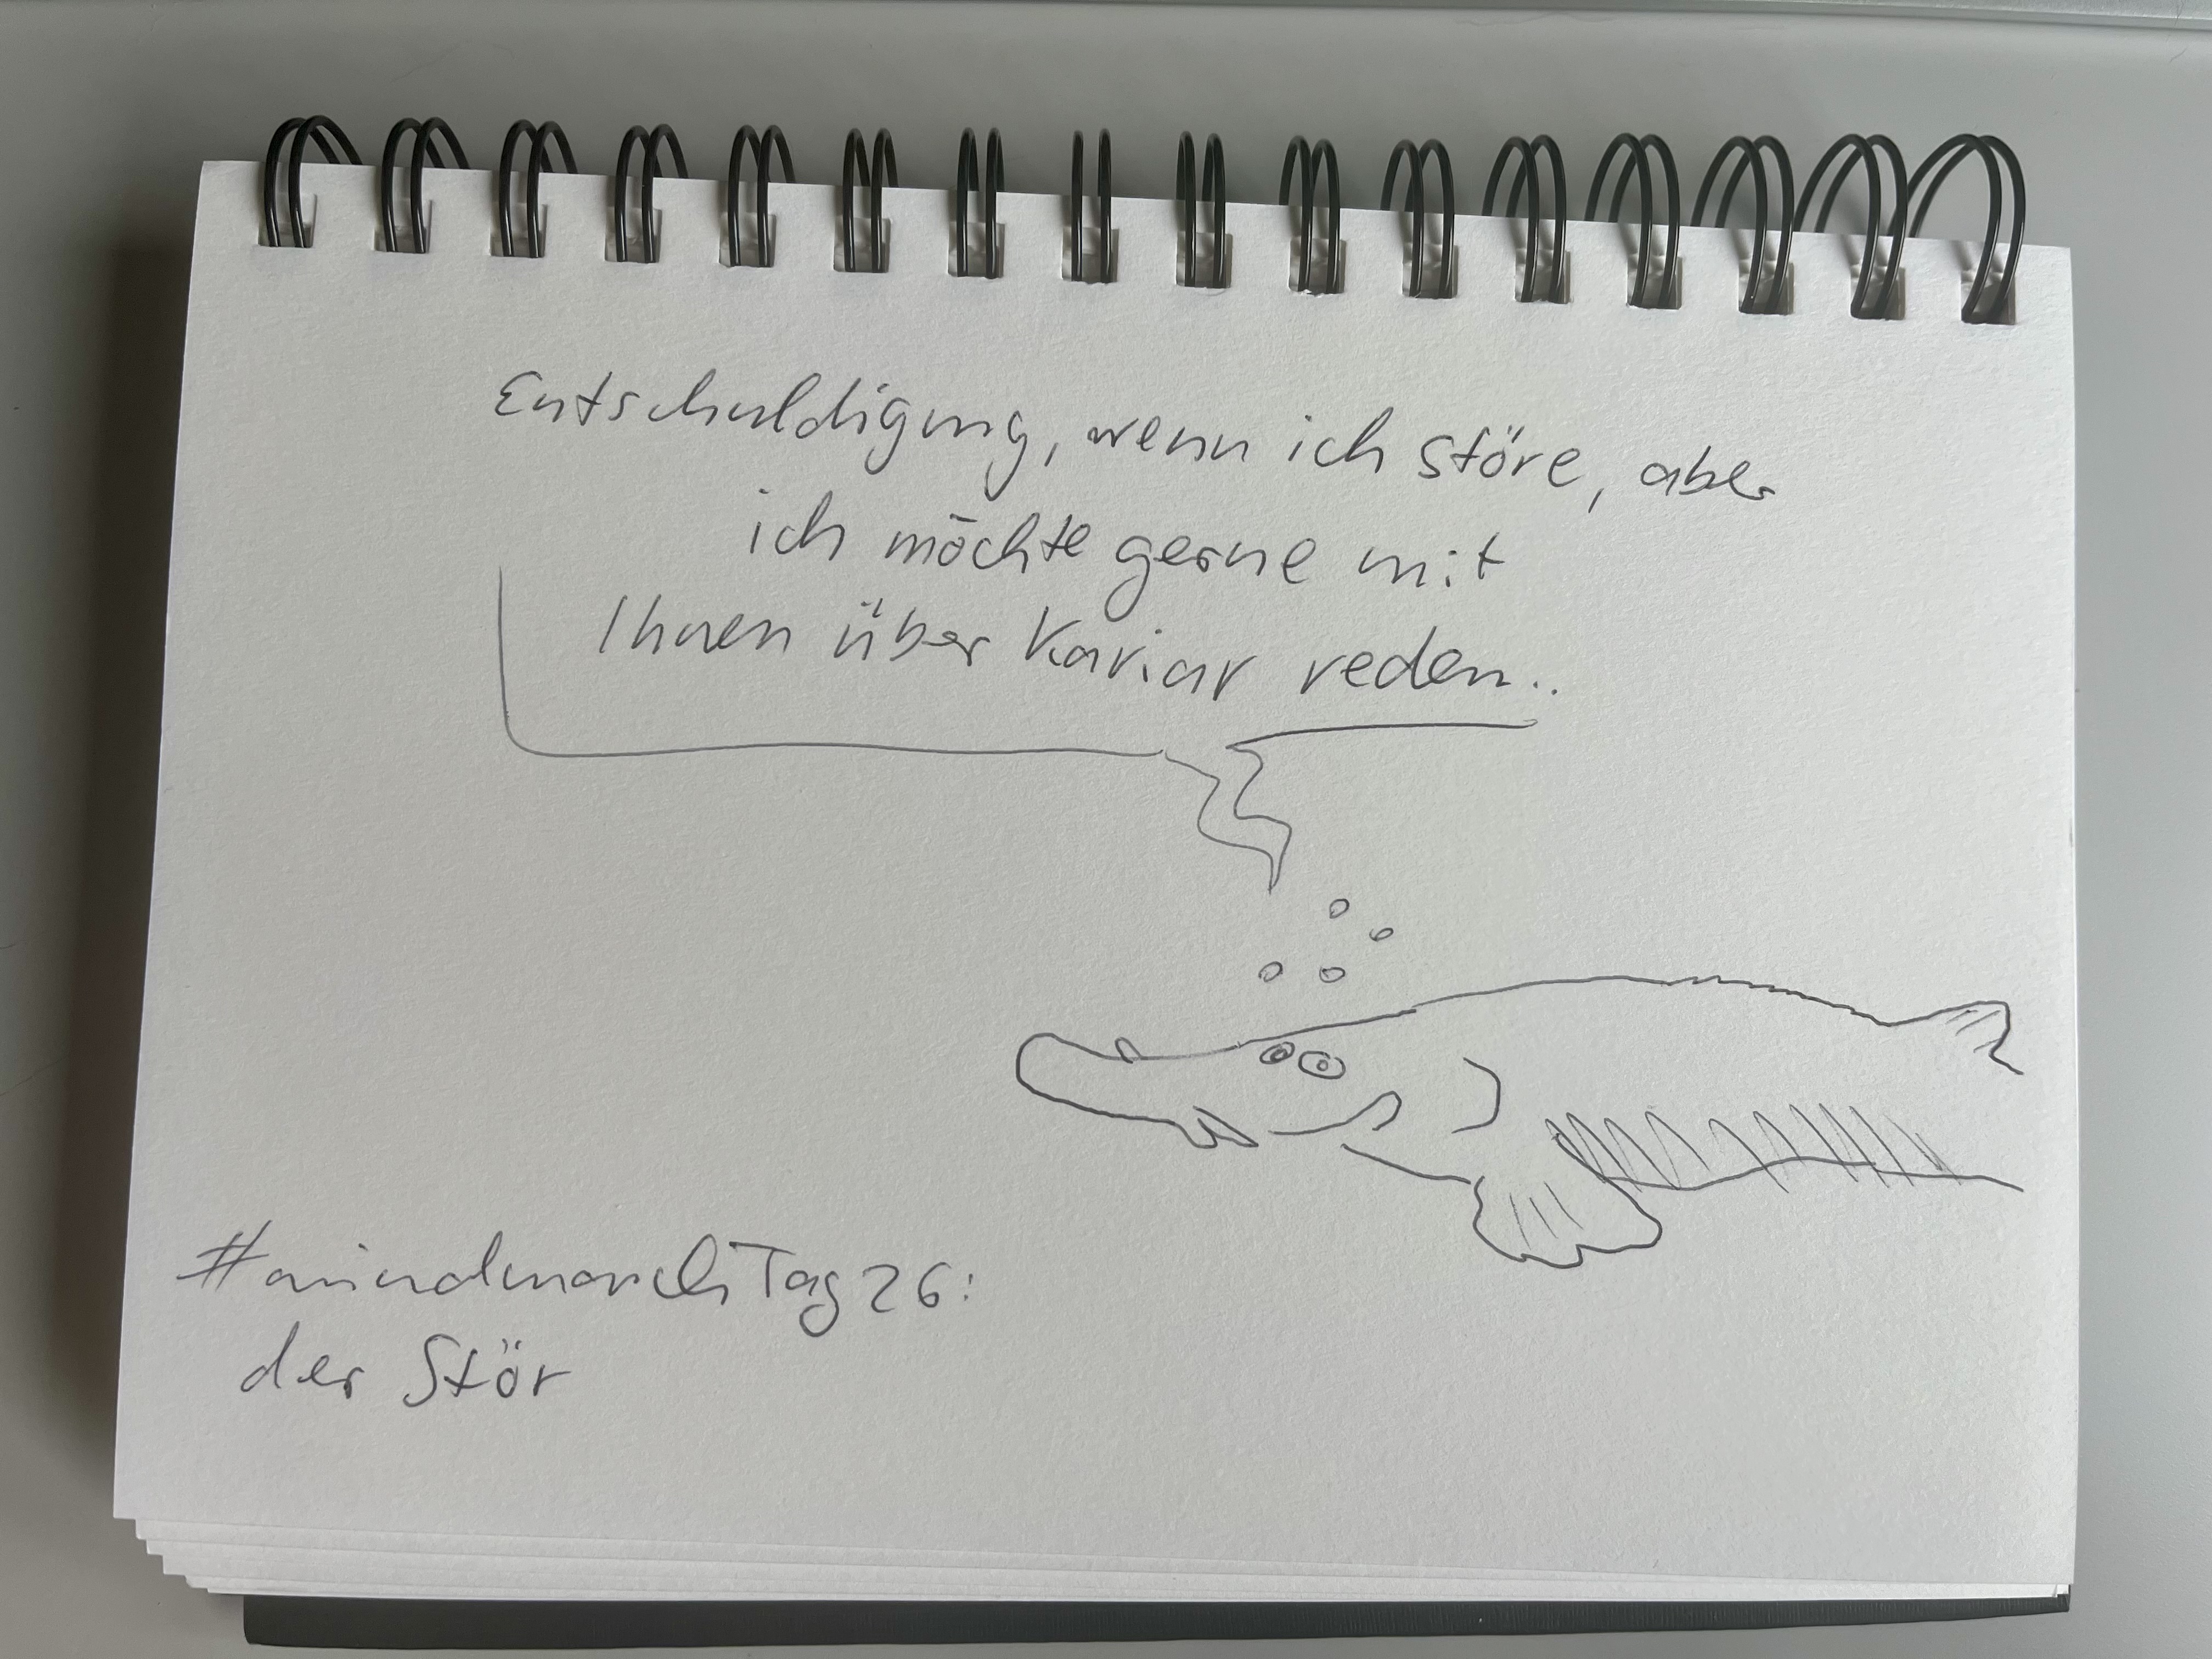 Entschuldigung, wenn ich störe, aber
ich möchte gerne mit
Ihnen über Kaviar reden..
Tag 26:
der Stör